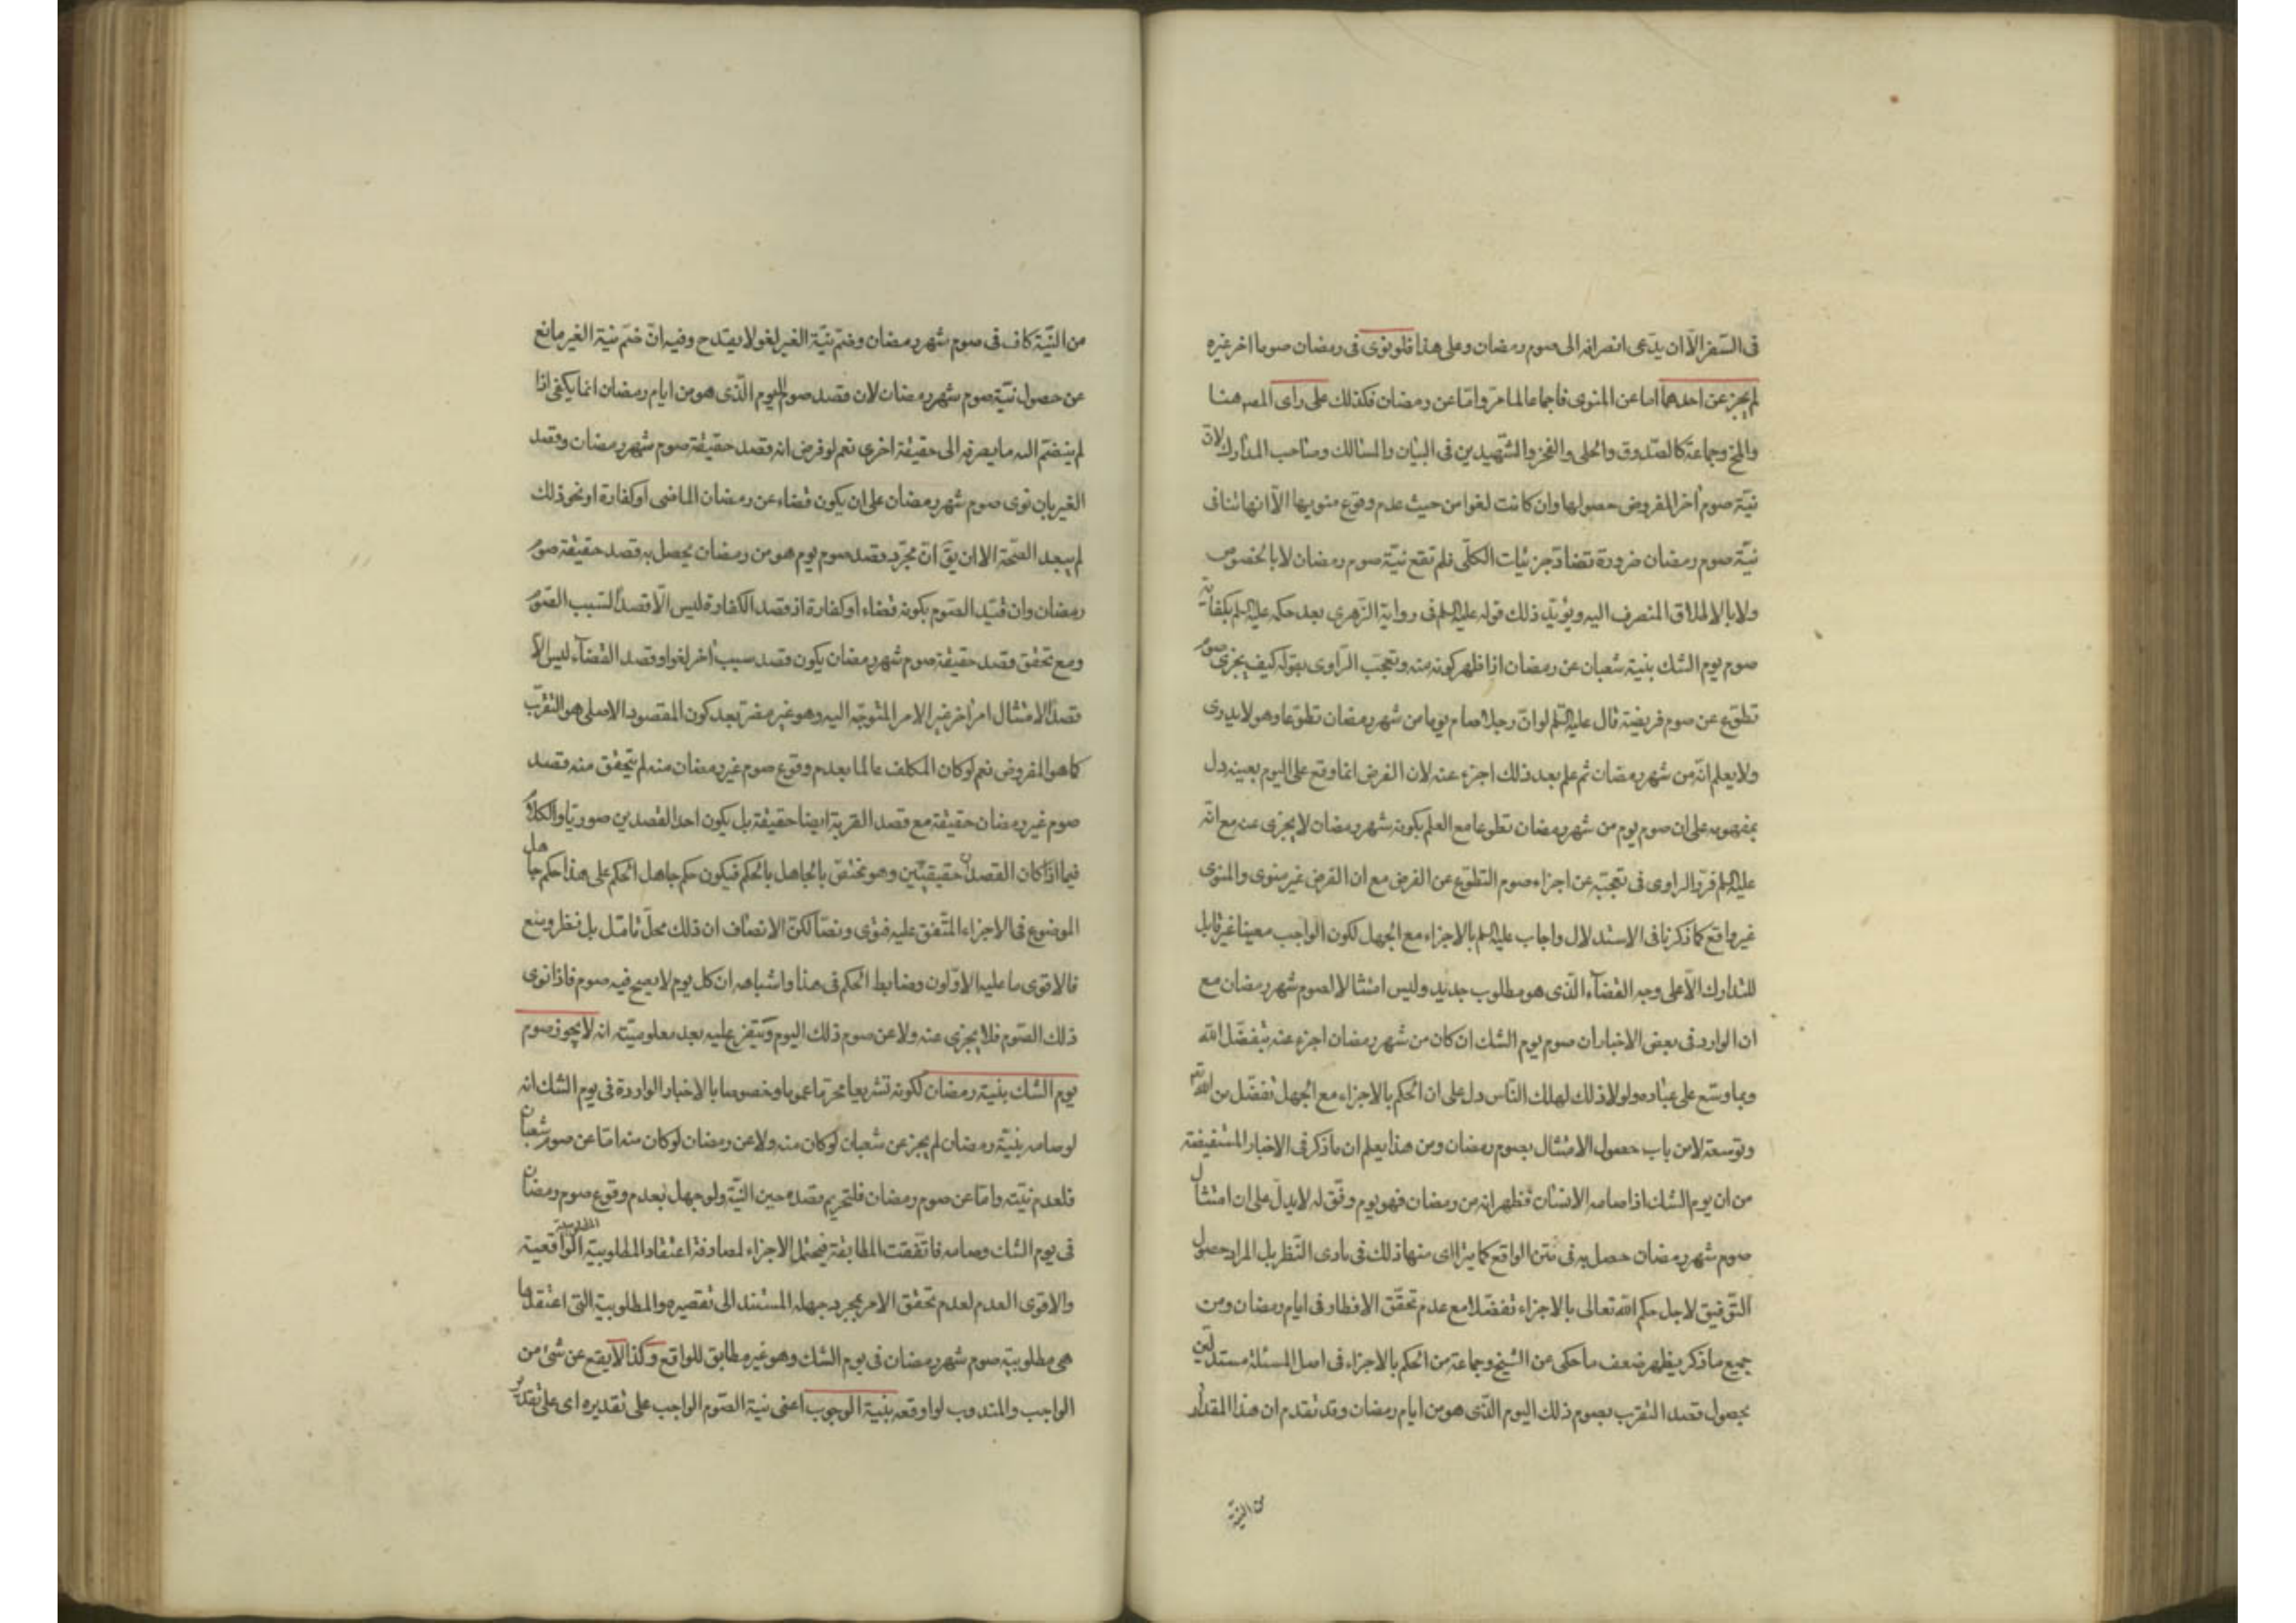 فى السفر الّا ان يدّعى انصرافه الى صوم رمضان وعلى هذا فلو نوى فى رمضان صوما اخر غيره
لم يجز عن احدهما اما عن المنوى فاجماعا لما مرّ وامّا عن رمضان فكذلك على راى المصـ هنا
والمخ وجماعة كالصّدوق والحلى والفخر والشّهيدين فى البيان والمسالك وصاحب المدارك لانّ
نيّة صوم اخر المفروض حصولها وان كانت لغوا من حيث عدم وقوع منويها الّا انها تناف
نيّة صوم رمضان ضرورة تضادّ جزئيات الكلّى فلم تقع نيّة صوم رمضان لا بالخصوص
ولا بالاطلاق المنصرف اليه ويؤيّد ذلك قوله عليه السلم فى رواية الزّهرى بعد حكمه عليه السلم بكفاية
صوم يوم الشك بنية شعبان عن رمضان اذا ظهر كونه منه وتعجّب الرّاوى بقوله كيف يجزى صوم
تطوّع عن صوم فريضة قال عليه السلم لو انّ رجلا صام يوما من شهر رمضان تطوّعا وهو لا يدرى
ولا يعلم انّه من شهر رمضان ثم علم بعد ذلك اجزء عنه لان الفرض انما وقع على اليوم بعينه دل
بمفهومه على ان صوم يوم من شهر رمضان تطوعا مع العلم بكونه شهر رمضان لا يجزى عنه مع انّه
عليه السلم قرّر الراوى فى تعجّبه عن اجزاء صوم التطوّع عن الفرض مع ان الفرض غير منوى والمنوى
غير واقع كما ذكرنا فى الاستدلال واجاب عليه السلم بالاجزاء مع الجهل لكون الواجب معينا غير قابل
للتدارك الّا على وجه القضآء الّذى هو مطلوب جديد وليس امتثالا لصوم شهر رمضان مع
ان الوارد فى بعض الاخبار ان صوم يوم الشك ان كان من شهر رمضان اجزء عنه بتفضّل اللّه
وبما وسّع على عباده ولولا ذلك لهلك النّاس دل على ان الحكم بالاجزاء مع الجهل تفضّل من اللّه تع
وتوسعة لا من باب حصول الامتثال بصوم رمضان ومن هذا يعلم ان ما ذكر فى الاخبار المستفيضة
من ان يوم الشك اذا صامه الانسان فظهر انه من رمضان فهو يوم وفّق له لا يدلّ على ان امتثال
صوم شهر رمضان حصل به فى متن الواقع كما يترااى منها ذلك فى بادى النّظر بل المراد حصول
التّوفيق لاجل حكم اللّه تعالى بالاجزاء تفضّلا مع عدم تحقّق الافطار فى ايام رمضان ومن
جميع ما ذكر يظهر ضعف ما حكى عن الشيخ وجماعة من الحكم بالاجزاء فى اصل المسئلة مستدلّين
بحصول قصد التقرب بصوم ذلك اليوم الّذى هو من ايام رمضان وقد تقدم ان هذا المقدار
من النيّة
من النيّة كاف فى صوم شهر رمضان وضمّ نيّة الغير لغو لا يقدح وفيه انّ ضمّ نية الغير مانع
عن حصول نيّة صوم شهر رمضان لان قصد صوم اليوم الّذى هو من ايام رمضان انما يكفى اذا
لم ينضمّ اليه ما يصرفه الى حقيقة اخرى نعم لو فرض انه قصد حقيقة صوم شهر رمضان وقصد
الغير بان نوى صوم شهر رمضان على ان يكون قضاء عن رمضان الماضى او كفارة او نحو ذلك
لم يبعد الصّحة الا ان يق انّ مجرّد قصد صوم يوم هو من رمضان يحصل به قصد حقيقة صوم
رمضان وان قيّد الصّوم بكونه قضاء او كفارة اذ قصد الكفارة ليس الّا قصدًا لسبب الصّوم
ومع تحقق قصد حقيقة صوم شهر رمضان يكون قصد سبب اخر لغوا وقصد القضآء ليس الّا
قصد الامتثال امر اخر غير الامر المتوجّه اليه وهو غير مضرّ بعد كون المقصود الاصلى هو التقرّب
كما هو المفروض نعم لو كان المكلف عالما بعدم وقوع صوم غير رمضان منه لم يتحقق منه قصد
صوم غير رمضان حقيقة مع قصد القربة ايضا حقيقة بل يكون احد القصدين صوريّا والكلام
فيما اذا كان القصدان حقيقيّين وهو مختص بالجاهل بالحكم فيكون حكم جاهل الحكم على هذا حكم جاهل
الموضوع فى الاجزاء المتّفق عليه فتوى ونصّا لكنّ الانصاف ان ذلك محلّ تامّل بل نظر ومنع
فالاقوى ما عليه الاوّلون وضابط الحكم فى هذا واشباهه ان كل يوم لا يصح فيه صوم فاذا نوى
ذلك الصّوم فلا يجزى عنه ولا عن صوم ذلك اليوم ويتفرّع عليه بعد معلوميّته انه لا يجوز صوم
يوم الشك بنية رمضان لكونه تشريعا محرّما عموما وخصوصا بالاخبار الواردة فى يوم الشك انه
لو صامه بنيّة رمضان لم يجز عن شعبان لو كان منه ولا عن رمضان لو كان منه امّا عن صوم شعبان
فلعدم نيّته وامّا عن صوم رمضان فلتحريم قصده حين النيّة ولو جهل بعدم وقوع صوم رمضان
فى يوم الشك وصامه فاتّفقت المطابقة فيحتمل الاجزاء لمصادفة اعتقاد المطلوبية المطلوبية الواقعية
والاقوى العدم لعدم تحقق الامر بمجرد جهله المستند الى تقصيره والمطلوبية التى اعتقدها
هى مطلوبية صوم شهر رمضان فى يوم الشك وهو غير مطابق للواقع وكذا لا يقع عن شئ من
الواجب والمندوب لو اوقعه بنية الوجوب اعنى نية الصّوم الواجب على تقديره اى على تقدير